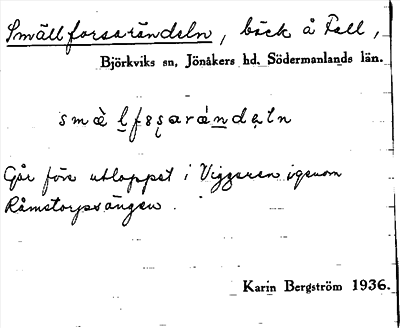 Smällforsarändeln, bäck å Fall,
Björkviks sn, Jönåkers hd. Södermanlands län.
smæ̀ l̥fsʂarándəln
Går före utloppet i Viggaren igenom
Råmstorpsängen.
Karin Bergström 1936.